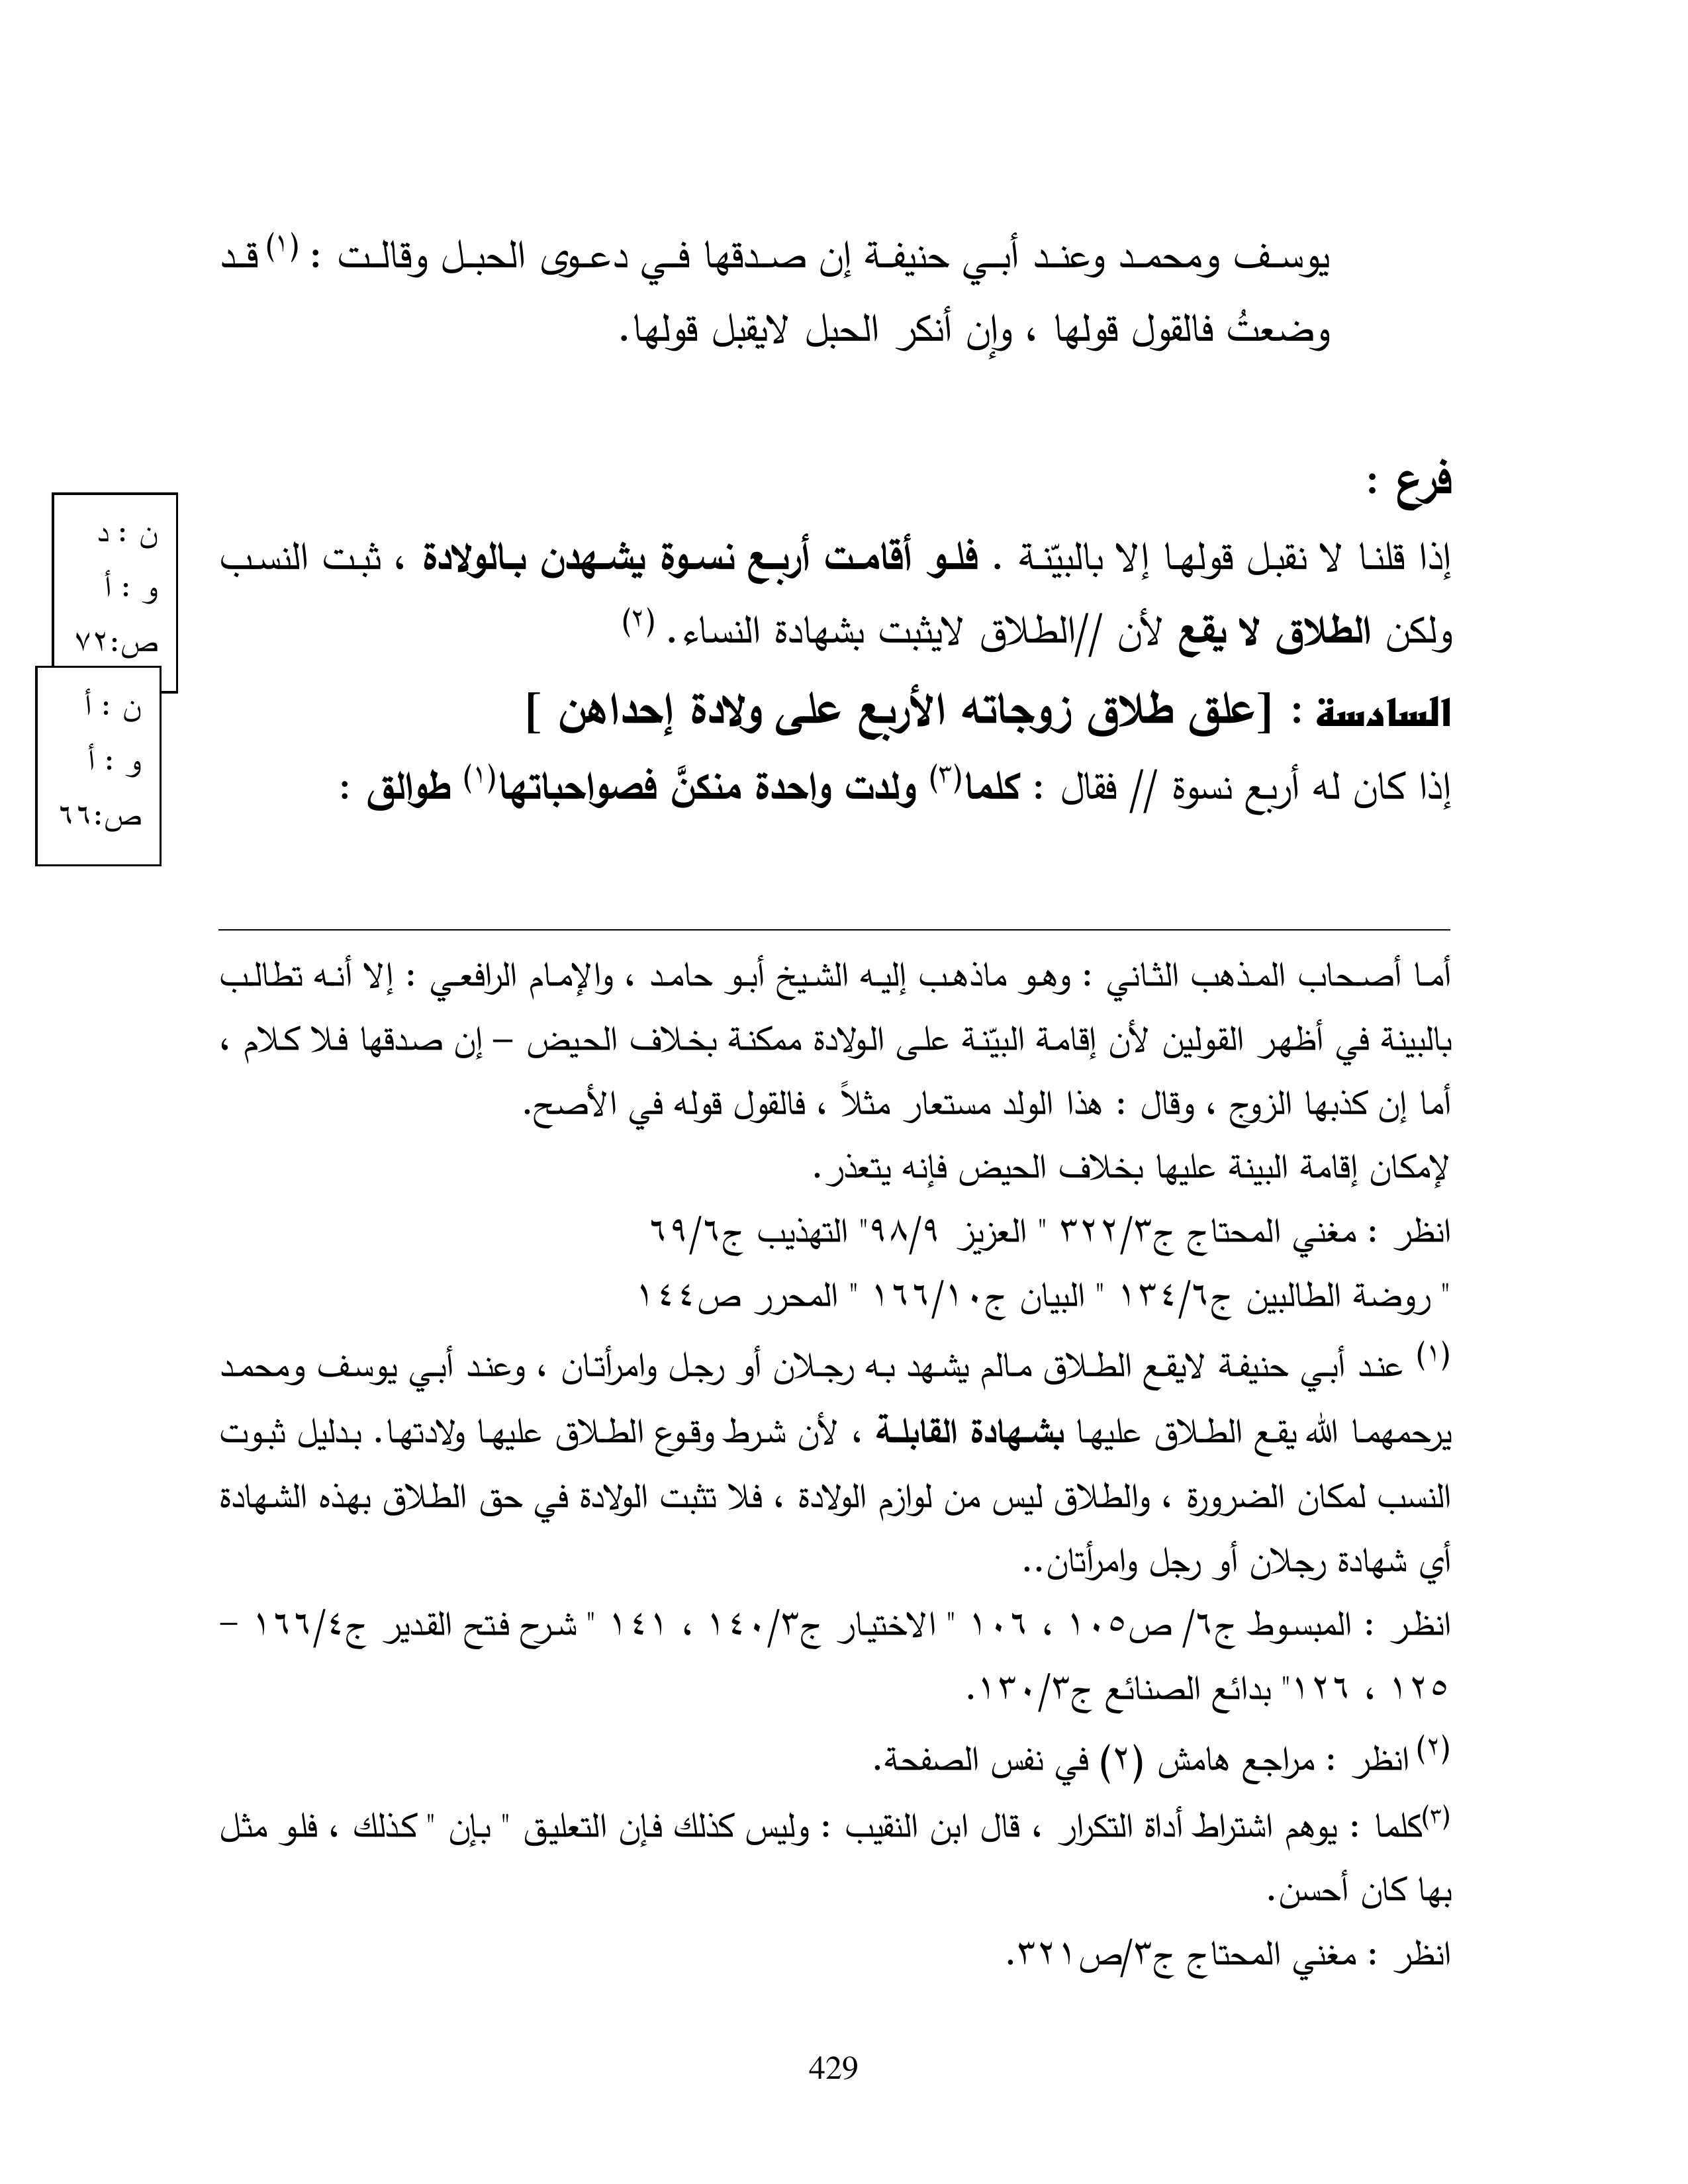 يوسف ومحمد وعند أبي حنيفة إن صدقها في دعوى الحبل وقالت : (١) قد
وضعتُ فالقول قولها ، وإن أنكر الحبل لايقبل قولها.
فرع :
إذا قلنا لا نقبل قولها إلا بالبيّنة . فلو أقامت أربع نسوة يشهدن بالولادة ، ثبت النسب
ولكن الطلاق لا يقع لأن //الطلاق لايثبت بشهادة النساء. (٢)
ن : د
و : أ
ص:٧٢
السادسة : [علق طلاق زوجاته الأربع على ولادة إحداهن ]
إذا كان له أربع نسوة // فقال : كلما(٣) ولدت واحدة منكنَّ فصواحباتها(١) طوالق :
ن : أ
و : أ
ص:٦٦
أما أصحاب المذهب الثاني : وهو ماذهب إليه الشيخ أبو حامد ، والإمام الرافعي : إلا أنه تطالب
بالبينة في أظهر القولين لأن إقامة البيّنة على الولادة ممكنة بخلاف الحيض – إن صدقها فلا كلام ،
أما إن كذبها الزوج ، وقال : هذا الولد مستعار مثلاً ، فالقول قوله في الأصح.
لإمكان إقامة البينة عليها بخلاف الحيض فإنه يتعذر.
انظر : مغني المحتاج ج٣/٣٢٢ " العزيز ٩٨/٩" التهذيب ج٦٩/٦
" روضة الطالبين ج١٣٤/٦ " البيان ج١٦٦/١٠ " المحرر ص١٤٤
(١) عند أبي حنيفة لايقع الطلاق مالم يشهد به رجلان أو رجل وامرأتان ، وعند أبي يوسف ومحمد
يرحمهما الله يقع الطلاق عليها بشهادة القابلة ، لأن شرط وقوع الطلاق عليها ولادتها. بدليل ثبوت
النسب لمكان الضرورة ، والطلاق ليس من لوازم الولادة ، فلا تثبت الولادة في حق الطلاق بهذه الشهادة
أي شهادة رجلان أو رجل وامرأتان..
انظر : المبسوط ج٦/ ص١٠٥ ، ١٠٦ " الاختيار ج١٤٠/٣ ، ١٤١ " شرح فتح القدير ج١٦٦/٤ –
١٢٥ ، ١٢٦" بدائع الصنائع ج١٣٠/٣.
(٢) انظر : مراجع هامش (٢) في نفس الصفحة.
(٣)كلما : يوهم اشتراط أداة التكرار ، قال ابن النقيب : وليس كذلك فإن التعليق " بإن " كذلك ، فلو مثل
بها كان أحسن.
انظر : مغني المحتاج ج٣/ص٣٢١.
429